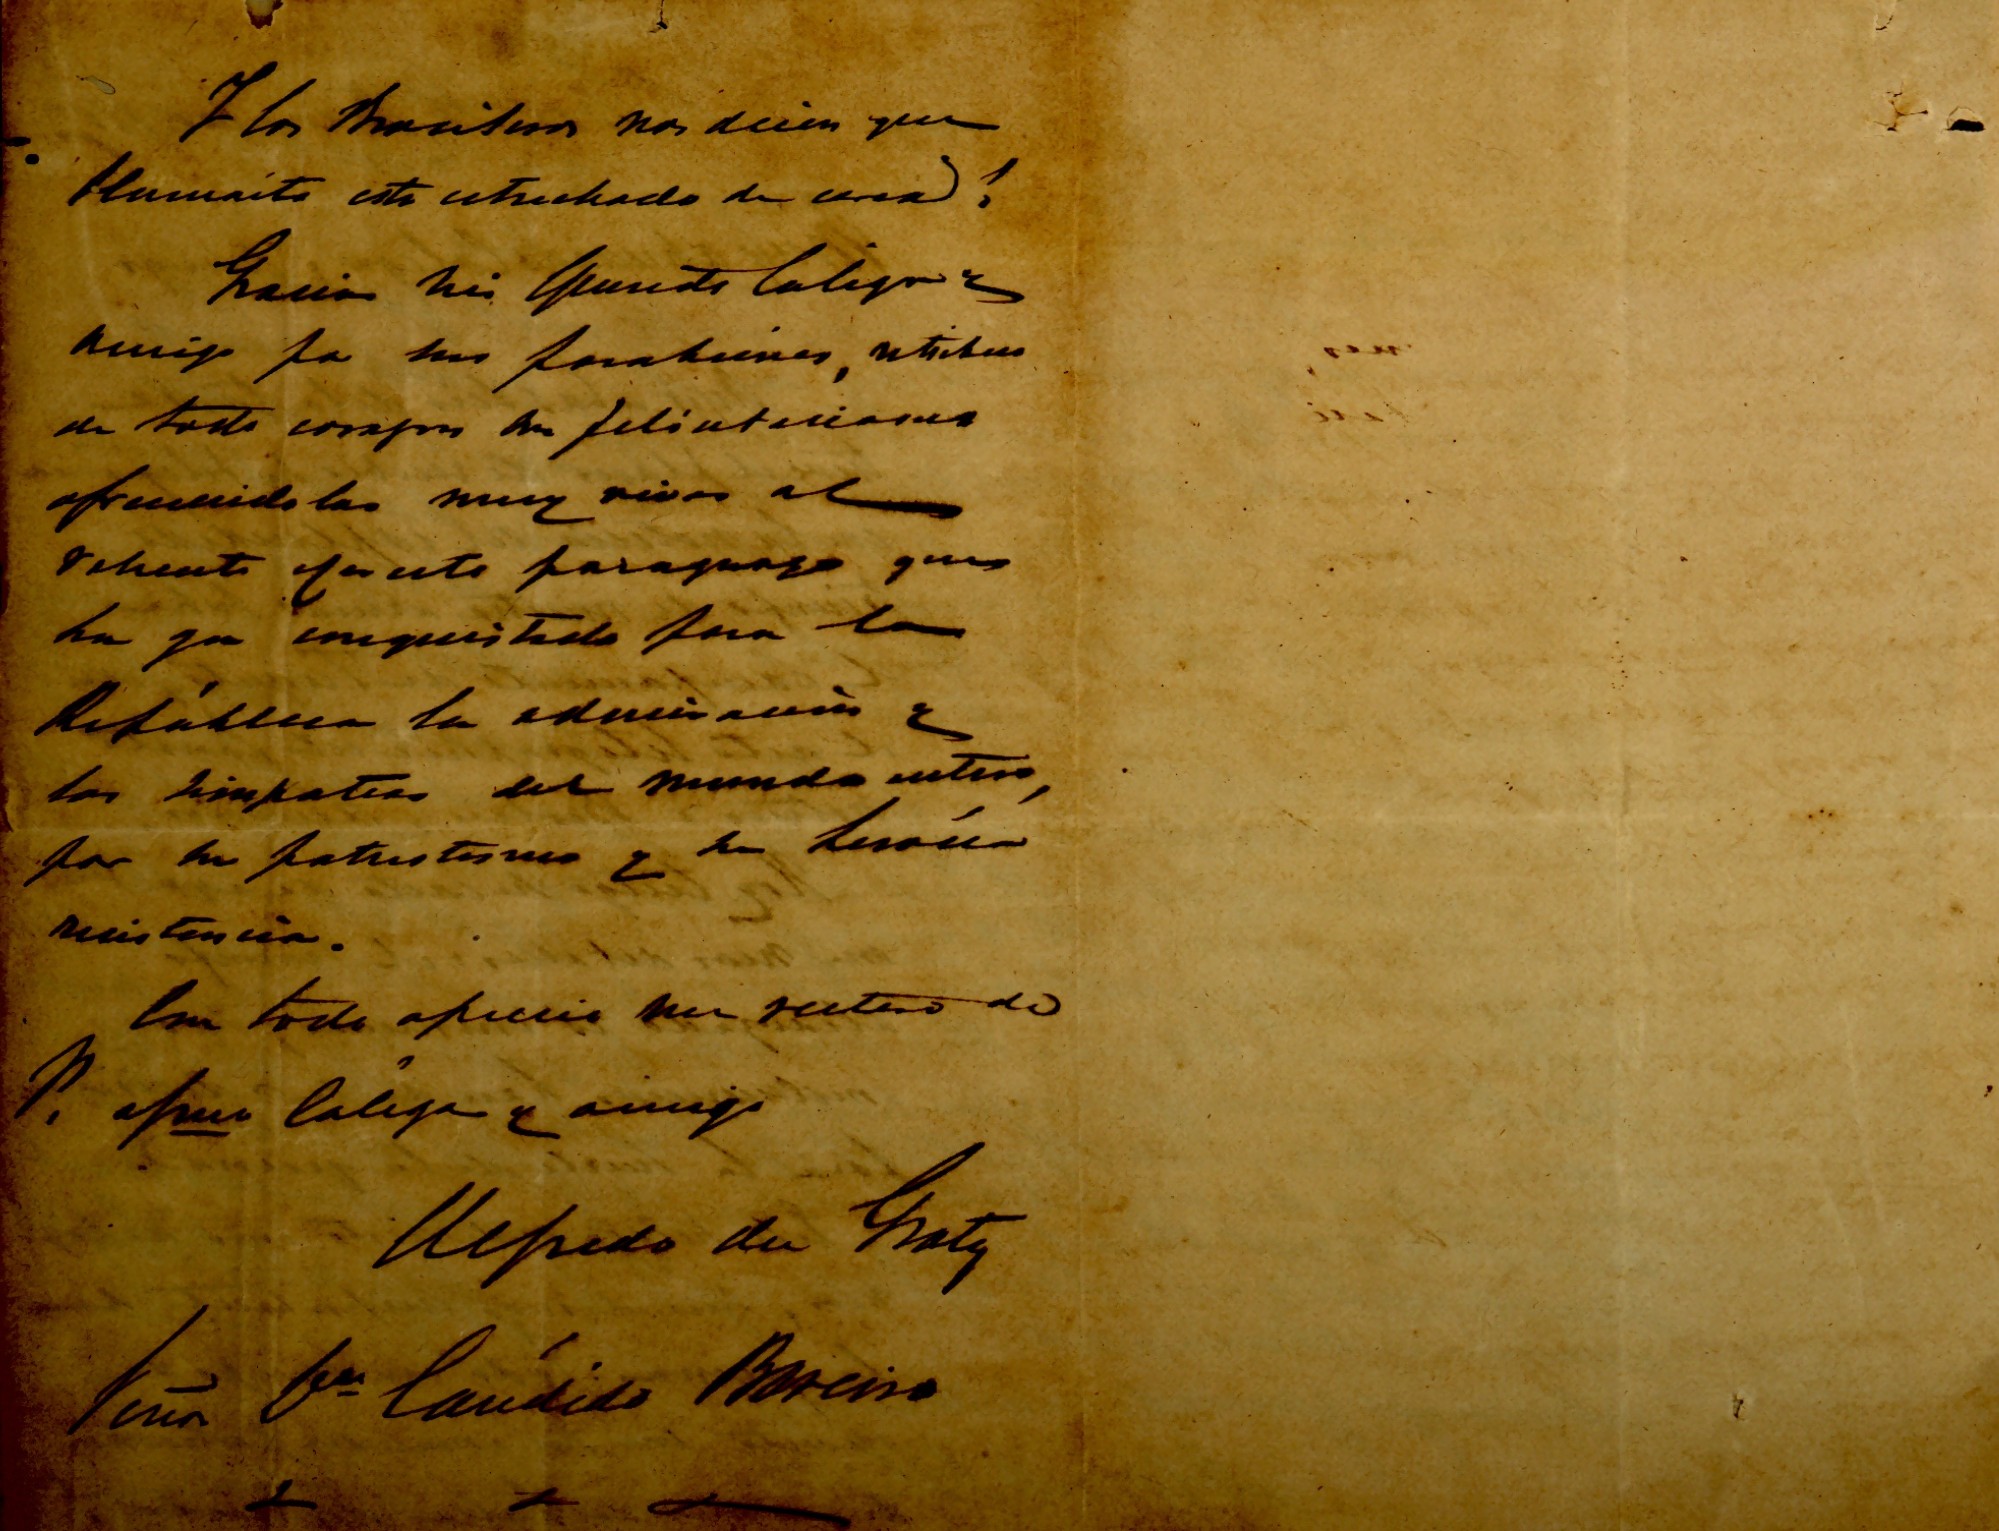 Y los Brasileros nos dicen que
Humaita esta estrechado de cerca!
Gracias mi Querido Colega y
amigo por sus parabienes, retribuo
de todo corazon sus felicitaciones
ofreciendolas muy vivas al
valiente ejercito paraguayo que
ha ya conquistado para la
República la admiración y
las simpatias del mundo entero,
por su patriotismo y su heroica
resistencia.
Con todo aprecio me reitero de
V. afmo Colega y amigo
Alfredo du Graty
Señor Don Cándido Bareiro